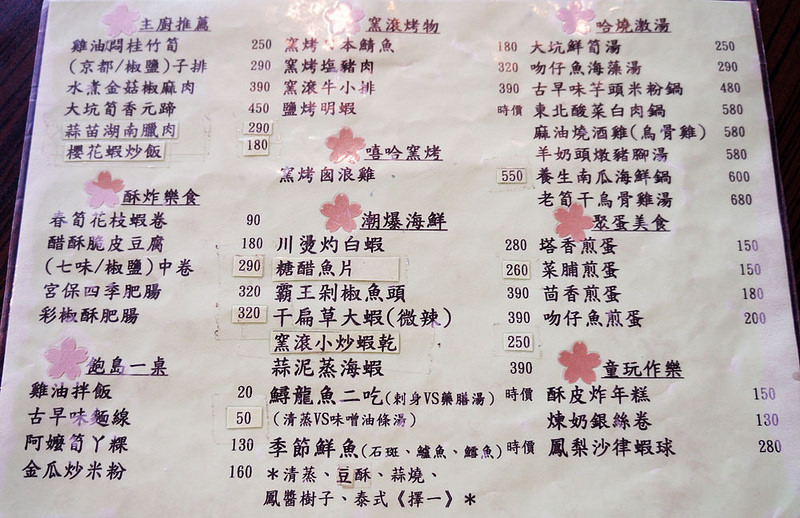 主廚推薦
雞油悶桂竹筍 250
(京都/椒鹽)子排 290
水煮金菇椒麻肉 390
大坑筍香元蹄 450
蒜苗湖南臘肉 290
櫻花蝦炒飯 180
酥炸樂食
春筍花枝蝦卷 90
醋酥脆皮豆腐 180
(七味/椒鹽)中卷 290
宮保四季肥腸 320
彩椒酥肥腸 320
飽島一桌
雞油拌飯 20
古早味麵線 50
阿嬤筍丫粿 130
金瓜炒米粉 160
窯滾烤物
窯烤 本鯖魚 180
窯烤塩豬肉 320
窯滾牛小排 390
鹽烤明蝦 時價
嘻哈窯烤
窯烤囪浪雞 550
潮爆海鮮
川燙灼白蝦 280
糖醋魚片 260
霸王剁椒魚頭 390
干扁草大蝦(微辣) 390
窯滾小炒蝦乾 250
蒜泥蒸海蝦 390
鱘龍魚二吃(刺身VS藥膳湯) 時價
(清蒸VS味噌油條湯)
季節鮮魚(石斑、鱸魚、鱈魚) 時價
*清蒸、豆酥、蒜燒、
鳳醬樹子、泰式《擇一》*
哈燒激湯
大坑鮮筍湯 250
吻仔魚海藻湯 290
古早味芋頭米粉鍋 480
東北酸菜白肉鍋 580
麻油燒酒雞(烏骨雞) 580
羊奶頭燉豬腳湯 580
養生南瓜海鮮鍋 600
老筍干烏骨雞湯 680
聚蛋美食
塔香煎蛋 150
菜脯煎蛋 150
茴香煎蛋 180
吻仔魚煎蛋 200
童玩作樂
酥皮炸年糕 150
煉奶銀絲卷 130
鳳梨沙律蝦球 280